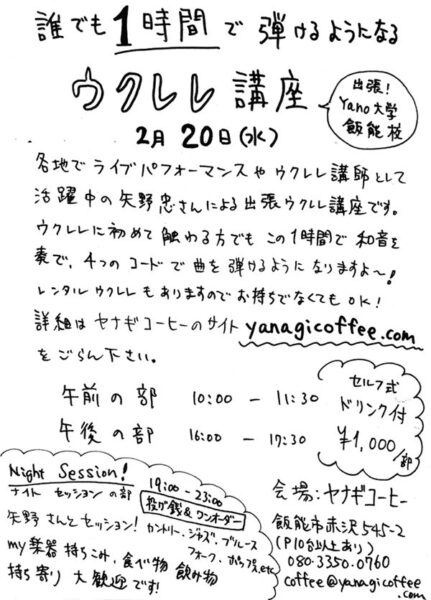 誰でも1時間で弾けるようになる
ウクレレ講座
出張!
Yano大学
飯能校
2月20日(水)
各地でライブパフォーマンスやウクレレ講師として
活躍中の矢野忠さんによる出張ウクレレ講座です。
ウクレレに初めて触わる方でもこの1時間で和音を
奏で、4つのコードで曲を弾けるようになりますよ〜!
レンタルウクレレもありますのでお持ちでなくてもOK!
詳細はヤナギコーヒーのサイト yanagicoffee.com
をごらん下さい。
午前の部 10:00 - 11:30
午後の部 16:00 - 17:30
セルフ式
ドリンク付
¥1,000/部
Night Session! 19:00-23:00
ナイトセッションの部 投げ銭&ワンオーダー
矢野さんとセッション! カントリー、ジャズ、ブルース
フォーク、ポップス,etc
my楽器持ちこみ、食べ物飲み物
持ち寄り大歓迎です!
会場:ヤナギコーヒー
飯能市赤沢545-2
(P10台以上あり)
080.3350.0760
coffee@yanagicoffee
.com